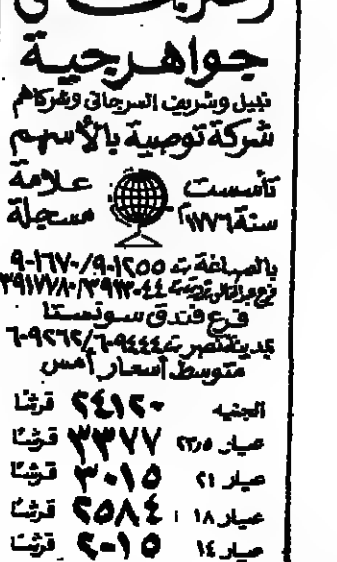 جواهرجية
نبيل وشريف السرجانى وشركاهم
شركة توصية بالأسهم
تأسست علامة
سنة ١٧٧٦م مسجلة
بالصاغة ت ٩٠١٢٥٥/٩٠١٦٧٠
٣٩١٣٠٤٤/٣٩١٧٧٨٠
فرع فندق سونستا
بمدينة نصر ت ٦٠٩٤٤٤/٦٠٩٢٦٢
متوسط أسعار أمس
الجنيه ٢٤١٢٠ قرشًا
عيار ٢٣٫٥ ٣٣٧٧ قرشًا
عيار ٢١ ٣٠١٥ قرشًا
عيار ١٨ ٢٥٨٤ قرشًا
عيار ١٤ ٢٠١٥ قرشًا